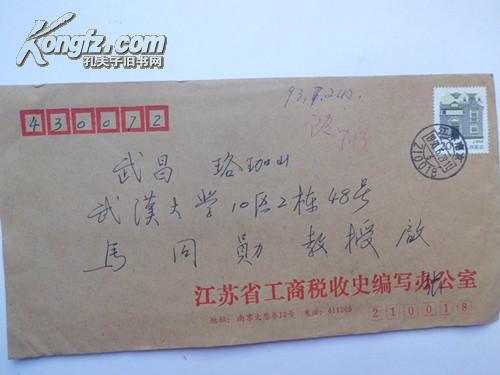 Kongfz.com
孔夫子旧书网
430072
武昌 珞珈山
武漢大学10区2栋48号
馬同勛教授啟
江苏省工商税收史编写办公室
地址：南京大悲巷12号 电话：411205
210018